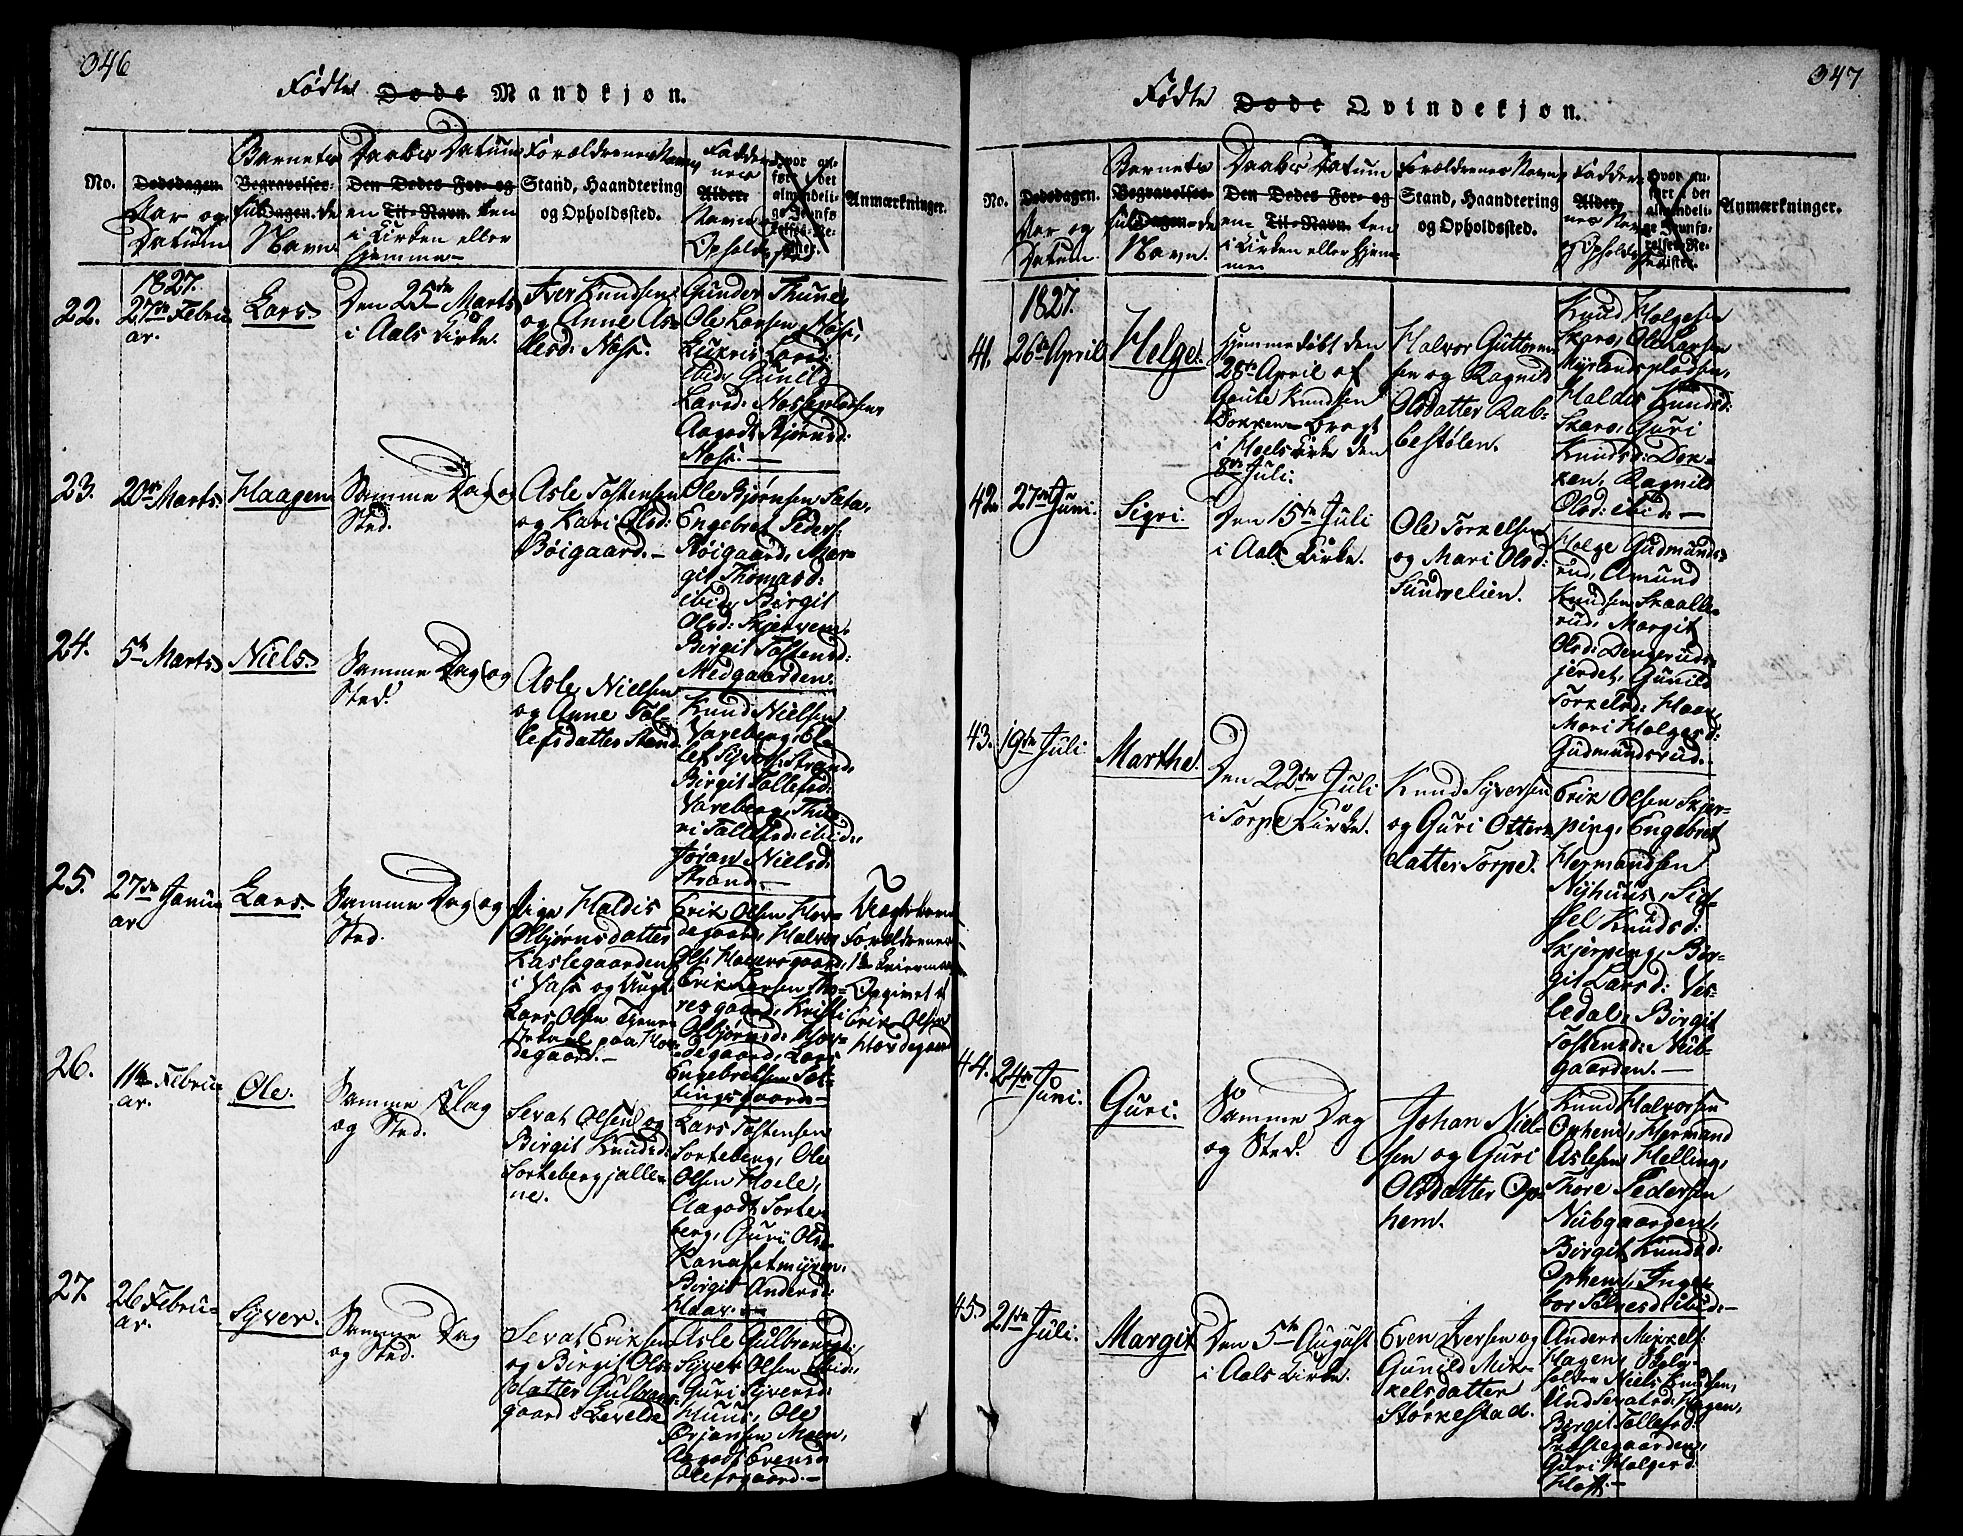 346
Fødte Døde Mandkjøn.
No.
Dødsdagen.
Aar og
Datum
Barnets
Begravelses-
fuldDagen.de
Navn
Daabs Datum
Den Dødes For- og
en Til-Navn. ten
i Kirken eller
hjemme
Forældrenes Navn
Stand, Haandtering
og Opholdssted.
Fadder-
nes
Alder.
Navn
Ophold-
sted
Anmærkninger.
1827.
22.
27de Febru
ar.
Lars
Den 25de Marts
i Aals Kirke.
Iver Knudsen
og Anne As-
lesd: Noss.
Gunder Thune,
Ole Larsen Noss,
Larsd:
ibid, Gunild
Larsd:
Aagodt Bjørnsd:
Noss. —
23.
20de Marts.
Haagen
Samme Dag og
Sted.
Asle Tostensen
og Kari Olsd:
Böigaard. —
Ole Bjørnsen Sata,
Engebret Peders:
Böigaard, Mar-
git Thomasd:
ibid, Birgit
Olsd: Skjerven,
Birgit Tostensd:
Medgaarden.
24.
5te Marts
Niels.
Samme Dag og
Sted.
Asle Nielsen
og Anne Tol-
lefsdatter Strand
Knud Nielsen
Vareberg, Ol-
lef Syvers: Strand,
Birgit Tollefsd:
Vareberg, Thu-
ri Tollefsd: ibid:,
Jøran Nielsd:
Strand. —
25.
27de Janu
ar
Lars
Samme Dag og
Sted.
Pige Haldis
Olbjørnsdatter
Kaslegaarden
i Vass og Ungk:
Lars Olsen Tjene-
paa Hov-
degaard. —
Erik Olsen Hov-
degaard, Halvor
Ols:
Erik Larsen Tho-
resgaard, Kristi
Olbjørnsd: Hov-
degaard, Lars
Engebretsen Sat-
tingsgaard. —
Uægtebarn
Forældrenes
1te Leiermaal
Opgivet af
Erik Olsen
Hovdegaard
26.
11te Febru
ar.
Ole.
Samme Dag
og Sted.
Sevat Olsen og
Birgit Knudsd:
Sortebergjalle-
ne.
Lars Tostensen
Sorteberg, Ole
Olsen Hoele,
Aagodt Sorte-
berg, Guri Olsd:
Birgit Andersd:
Haav. —
27
26 Febru-
ar.
Syver.
Samme Dag
og Sted.
Sevat Eriksen
og Birgit Ols-
datter Gulbrans-
gaard i Levelde
Asle Gulbransgd:
Syver Olsen ibid:,
Guri Syversd:
Huus, Ole
Ørjansen Moen,
Aagodt Evensd:
Olefsgaard. —
347
Fødte Døde Qvindekjøn.
No.
Dødsdagen.
Aar og
Datum
Barnets
Begravelses-
fuldDagen.de
Navn.
Daabs Datum
Den Dødes For- og
en Til-Navn. ten
i Kirken eller hjem-
me
Forældrenes Navn,
Stand, Haandtering
og Opholdssted.
Fadder-
Alder.
nes Navn
og Opholds-
sted
Anmærkninger.
1827.
41.
26de April
Helge.
Hjemmedøbt den
28de April af
Goute Knudsen
Dokken Bragt
i Hoels Kirke den
8de Juli.
Halvor Guttorm-
sen og Ragnild
Olsdatter Rab-
bestølen.
Knud Helgesen
Skaro, Ole Larsen
Myrlandspladsen,
Haldis Knudsd:
Skaro, Guri
Knudsd: Dok-
ken, Ragnild
Olsd: ibid: —
42.
27de Juni.
Sigri.
Den 15de Juli
i Aals Kirke.
Ole Torkelsen
og Mari Olsd:
Sundrelien.
Helge Gudmunds-
rud, Amund
Knudsen Skaalle-
rud, Margit
Olsd: Dengeruds-
jerdet, Gunild
Torkelsd: Haae,
Mari Helgesd:
Gudmundsrud. —
43.
19de Juli
Marthe.
Den 22de Juli
i Torpe Kirke.
Knud Syversen
og Guri Otters-
datter Torpe.
Erik Olsen Skjer-
ping, Engebret
Hermandsen
Nyhuus, Sid-
sel Knudsd:
Skjerping, Bir-
git Larsd: Ves-
ledal, Birgit
Tostensd: Nub-
gaarden. —
44.
24de Juni.
Guri.
Samme Dag
og Sted.
Johan Niel-
sen og Guri
Olsdatter Op-
hem.
Knud Halvorsen
Ophem, Hermand
Aslesen Helling,
Thore Pedersen
Nubgaarden,
Birgit Knudsd:
Ophem, Inge-
bor Sølvesd: ibid: —
45.
21de Juli.
Margit
Den 5te August
i Aals Kirke.
Even Iversen og
Gunild Mik-
kelsdatter
Størkestad.
Anders Mikkels:
Hagen,
Niels Knudsen,
Hagen,
Birgit Tollefsd:
Præstegaarden,
Guri Helgesd: